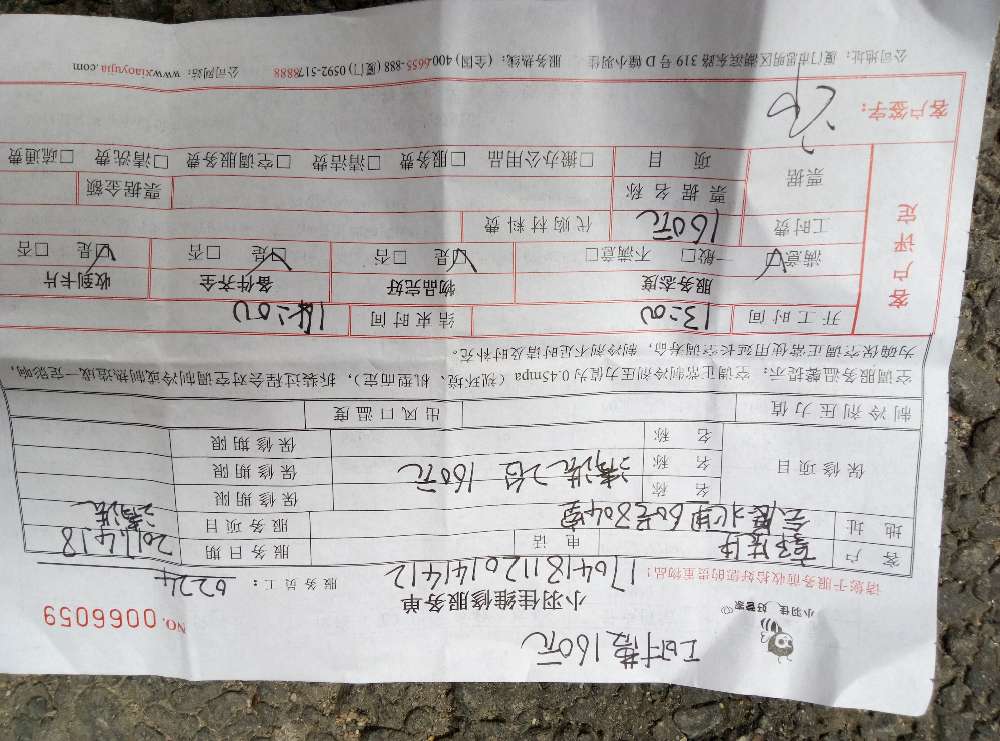 工时费160元
小羽佳 好管家
小羽佳维修服务单
NO. 0066059
1704181120141412
请您于服务前收拾好您的贵重物品!
服务员工: 0224
客户 电话 服务日期 2017.4.18
地址 会展北里60号804室 服务项目 清洗
保修项目 名称 保修期限
名称 清洗2台 160元 保修期限
名称 保修期限
制冷剂压力值 出风口温度
空调服务温馨提示:空调正常制冷剂压力值为0.45mpa(视环境、机型而定),拆装过程会对空调制冷或制热造成一定影响,
为确保空调正常使用延长空调寿命,制冷剂不足时请及时补充。
客户评定
开工时间 13:00 结束时间 14:00
服务态度 物品完好 备件齐全 收到卡片
满意□ 一般□ 不满意□ 是□ 否□ 是□ 否□ 是□ 否□
工时费 160元 代购材料费
票据 票据名称 票据金额
项目 □搬办公用品 □服务费 □清洁费 □空调服务费 □清洗费 □疏通费
客户签字:
公司地址:厦门市思明区湖滨东路319号D幢小羽佳 服务热线:(全国)400-6655-888(厦门)0592-5178888 公司网站:www.xiaoyujia.com